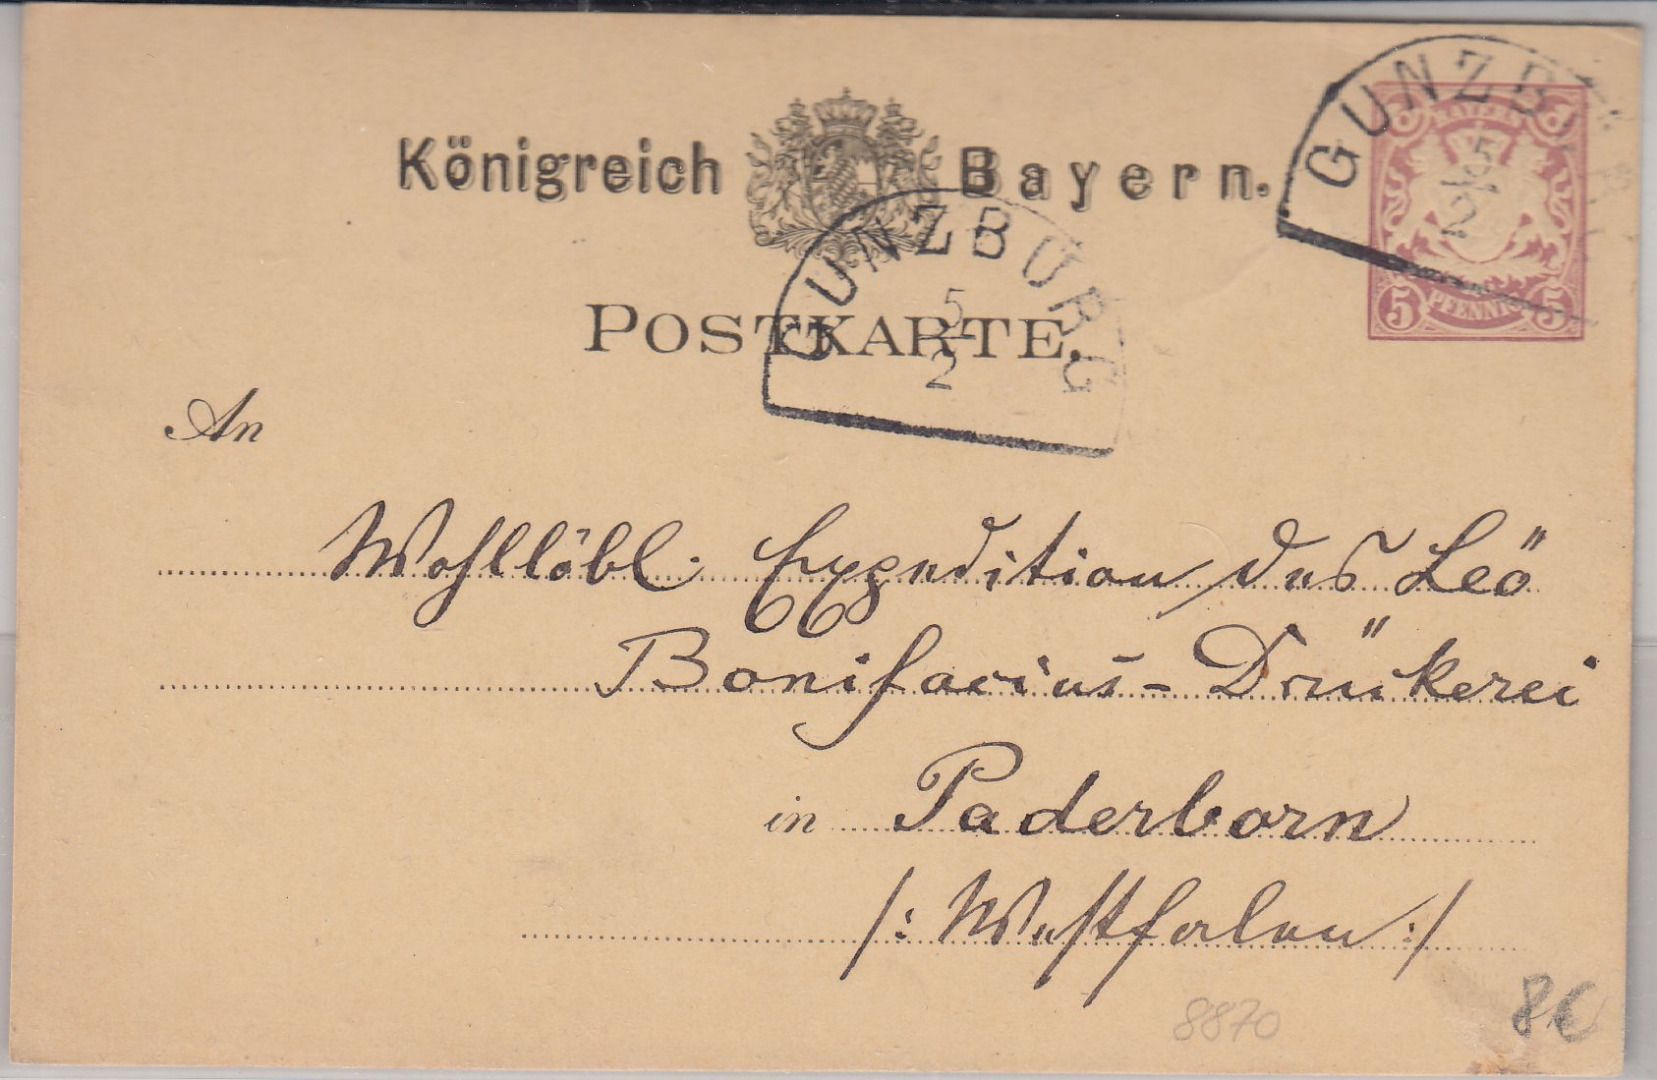 Königreich Bayern.
BAYERN
5 PFENNIG 5
GUNZBU
5
2
GUNZBURG
5
2
POSTKARTE.
An
Wohllöbl. Expedition des Leö
Bonifacius-Drückerei
in Paderborn
/: Westfalen :/
8870
8€